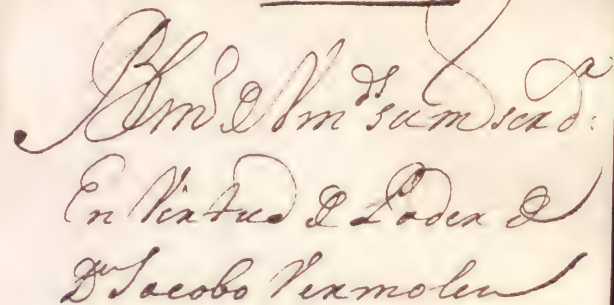 BLm.ˢ de Vm.ᵈˢ su m.ˢ serv.ᵃ
En Virtud de Poder de
D.ⁿ Jacobo Vermolen